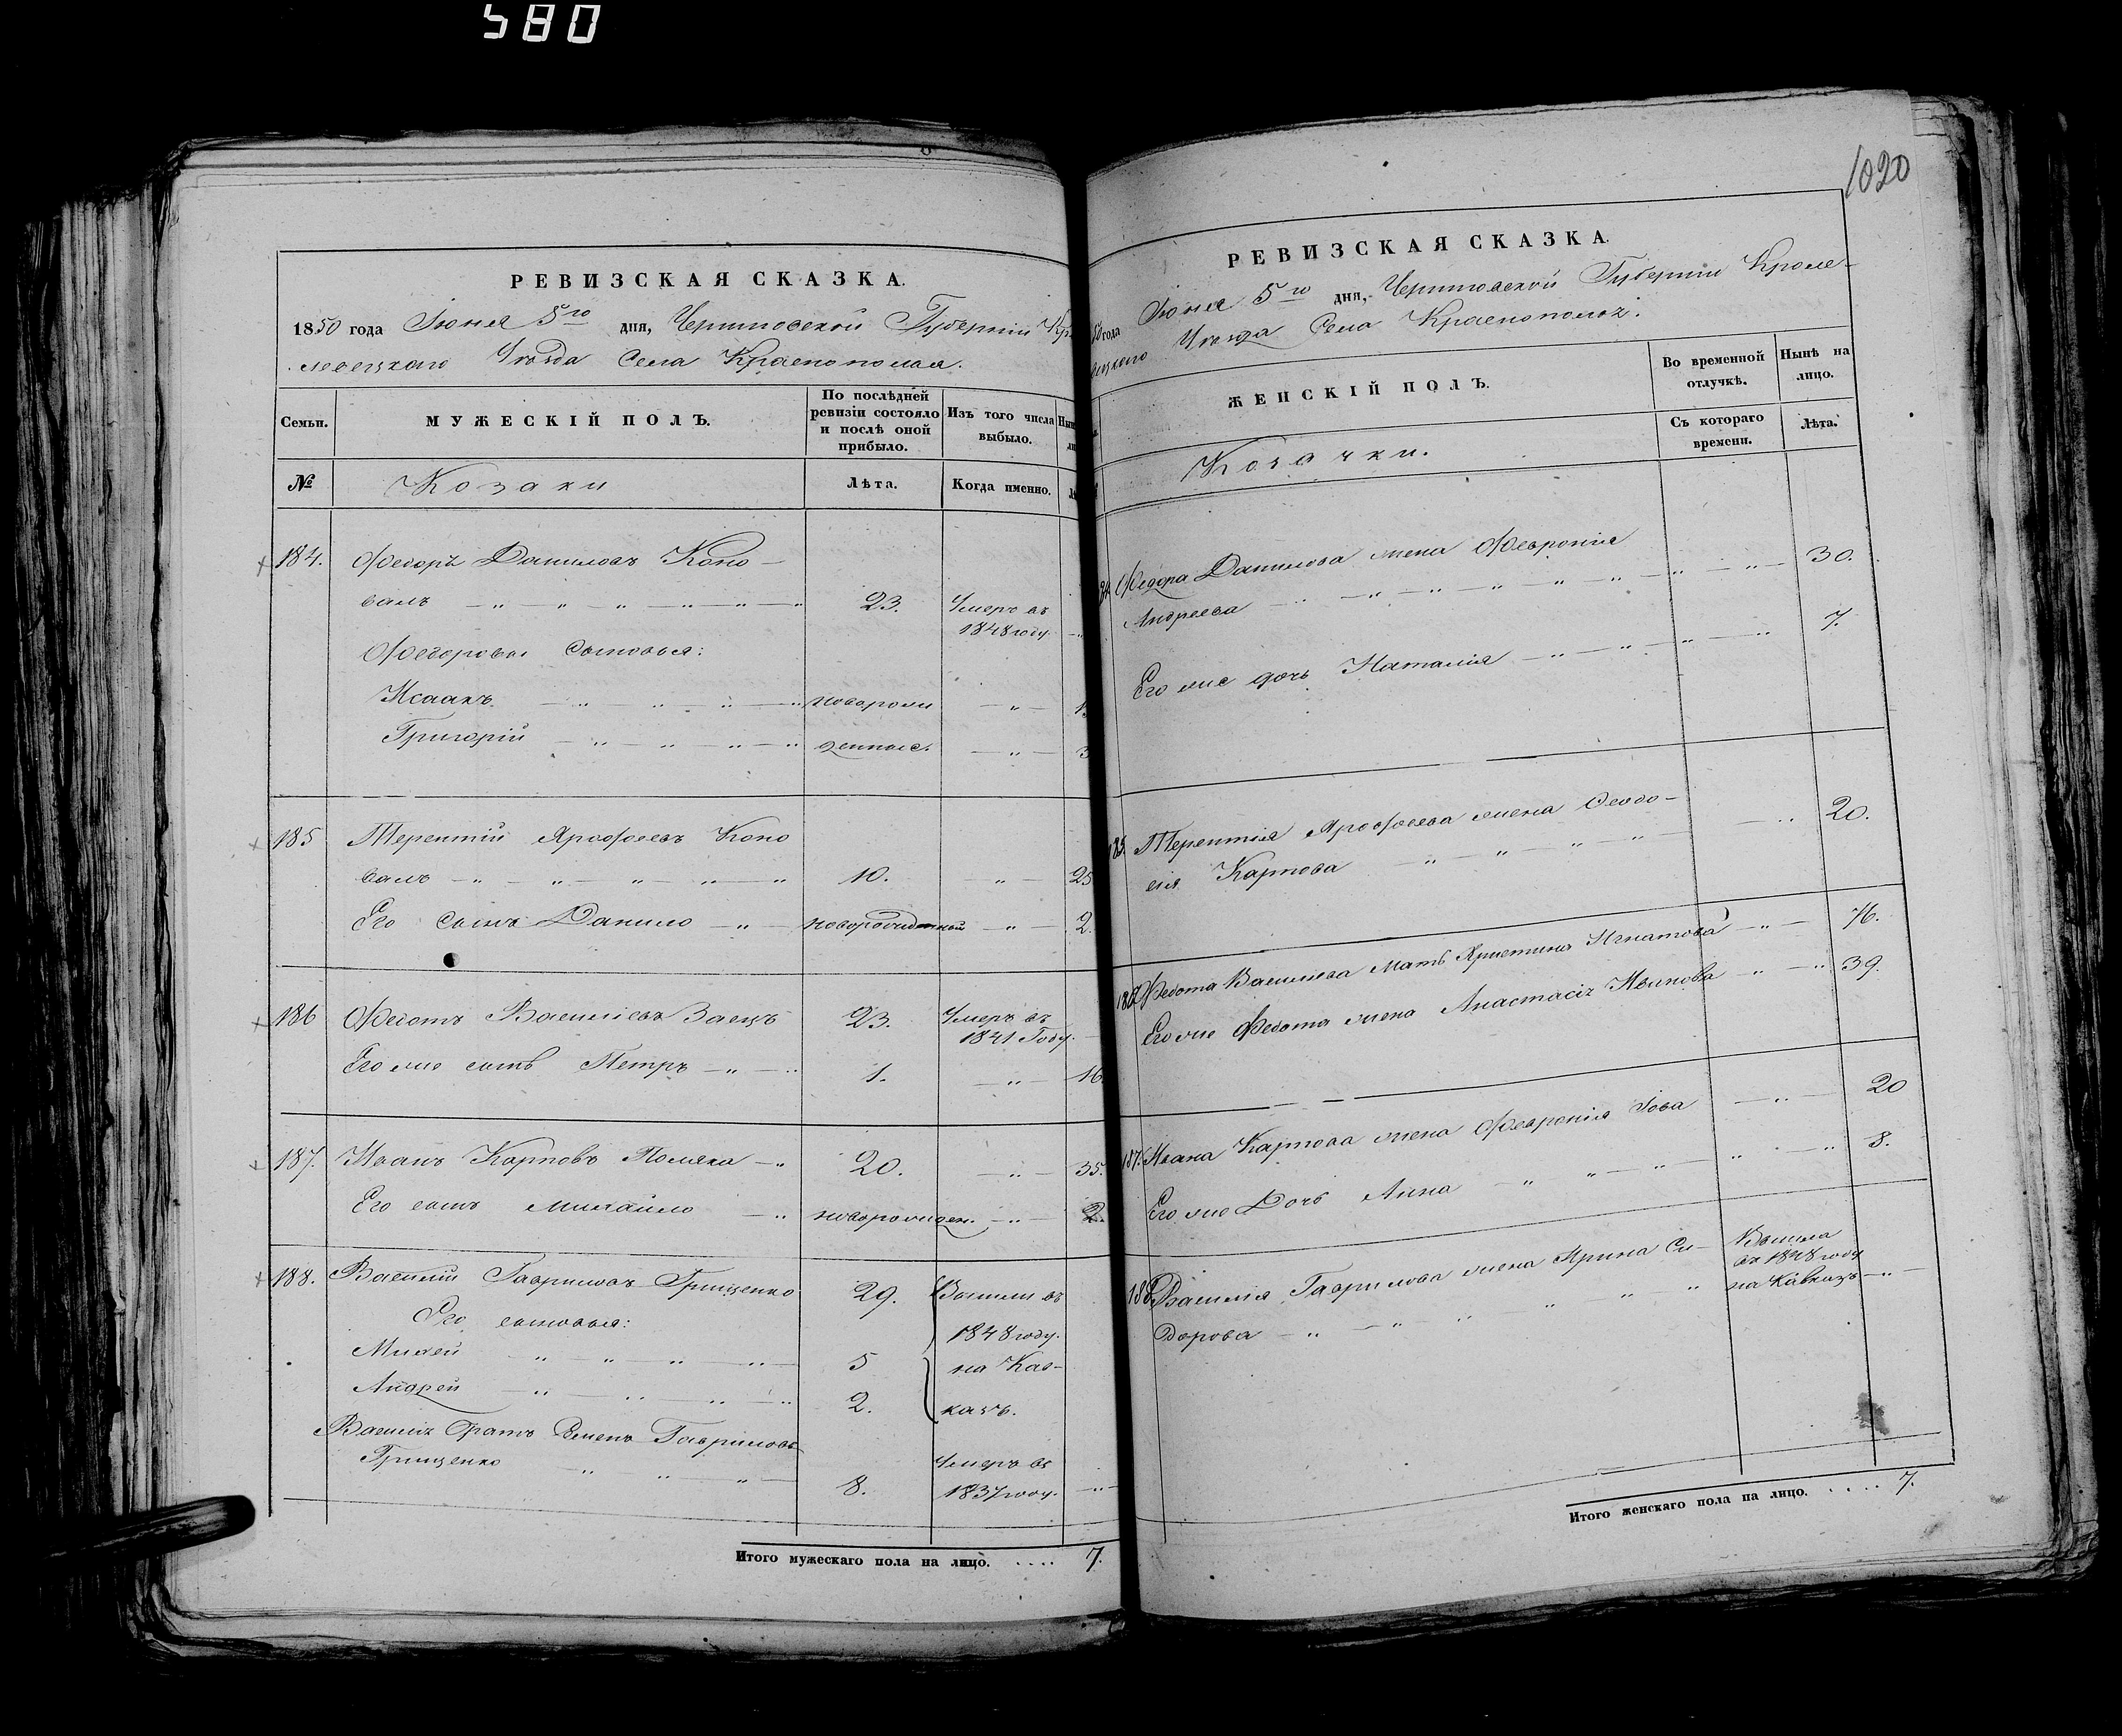 580
РЕВИЗСКАЯ СКАЗКА.
1850 года Іюня 5го дня, Черниговской Губерніи Кро
левецкаго Уѣзда Села Краснополья.
Семьи.
МУЖЕСКІЙ ПОЛЪ.
По послѣдней
ревизіи состояло
и послѣ оной
прибыло.
Изъ того числа
выбыло.
№
Козаки
Лѣта.
Когда именно.
184. Федоръ Даниловъ Коно-
валъ 23. Умеръ въ
1848 году.
Федоровы сыновья:
Исаакъ новорож
Григорій денные. 3
185 Терентій Ярофеевъ Коно
валъ 10. 25
Его сынъ Данило новорожденный 2.
186 Федотъ Василіевъ Заецъ 23. Умеръ въ
1841 Году.
Его же сынъ Петръ 1. 16
187. Иванъ Карповъ Поляка 20. 35.
Его сынъ Михайло новорожден. 2.
188. Василій Гавриловъ Грищенко 29. Вышли въ
Его сыновья: 1848 году.
Михей 5 на Кав-
Андрей 2. казъ.
Василія братъ Семенъ Гавриловъ
Грищенко 8. Умеръ въ
1837 году.
Итого мужескаго пола на лицо. .... 7.
1020
РЕВИЗСКАЯ СКАЗКА.
50 года Іюня 5го дня, Черниговской Губерніи Кроле-
вецкаго Уѣзда Села Краснополья.
ЖЕНСКІЙ ПОЛЪ.
Во временной
отлучкѣ.
Нынѣ на
лицо.
Съ котораго
времени.
Лѣта.
Козачки.
184 Федора Данилова жена Февронія
Андреева 30.
Его же дочь Наталія 7.
185. Терентія Ярофеева жена Феодо-
сія Карпова 20.
186 Федота Василіева мать Христина Игнатова 76.
Его же Федота жена Анастасія Иванова 39.
187. Ивана Карпова жена Февронія Іова 20
Его же Дочь Анна 8.
188 Василія Гаврилова жена Ирина Си- Вышла
въ 1848 году
дорова на Кавказъ
Итого женскаго пола на лицо. .... 7.